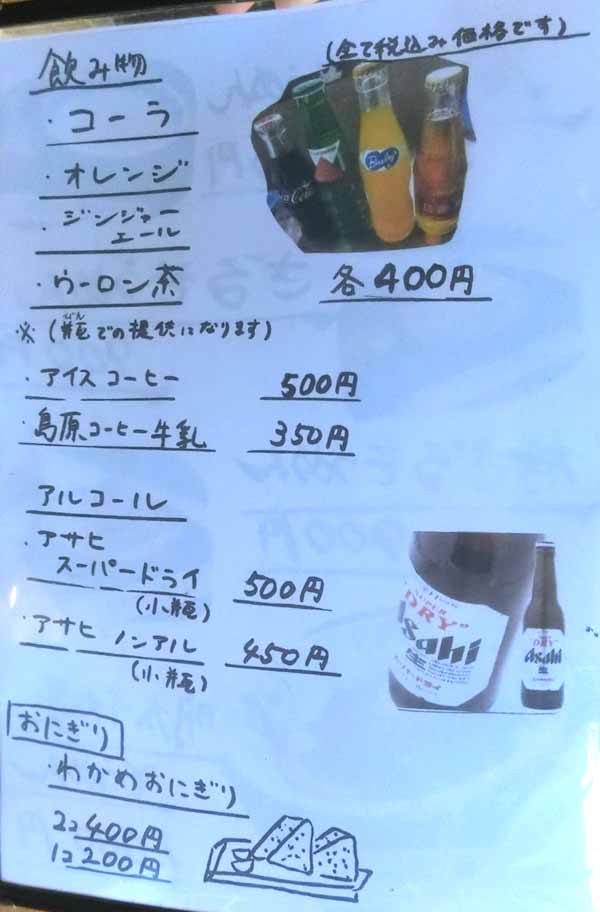 飲み物
(全て税込み価格です)
・コーラ
・オレンジ
・ジンジャー
エール
・ウーロン茶
各400円
※(瓶での提供になります)
・アイスコーヒー 500円
・島原コーヒー牛乳 350円
アルコール
・アサヒ
スーパードライ 500円
(小瓶)
・アサヒ ノンアル 450円
(小瓶)
SUPER
DRY
Asahi
生
DRY
Asahi
生
おにぎり
・わかめおにぎり
2コ 400円
1コ 200円